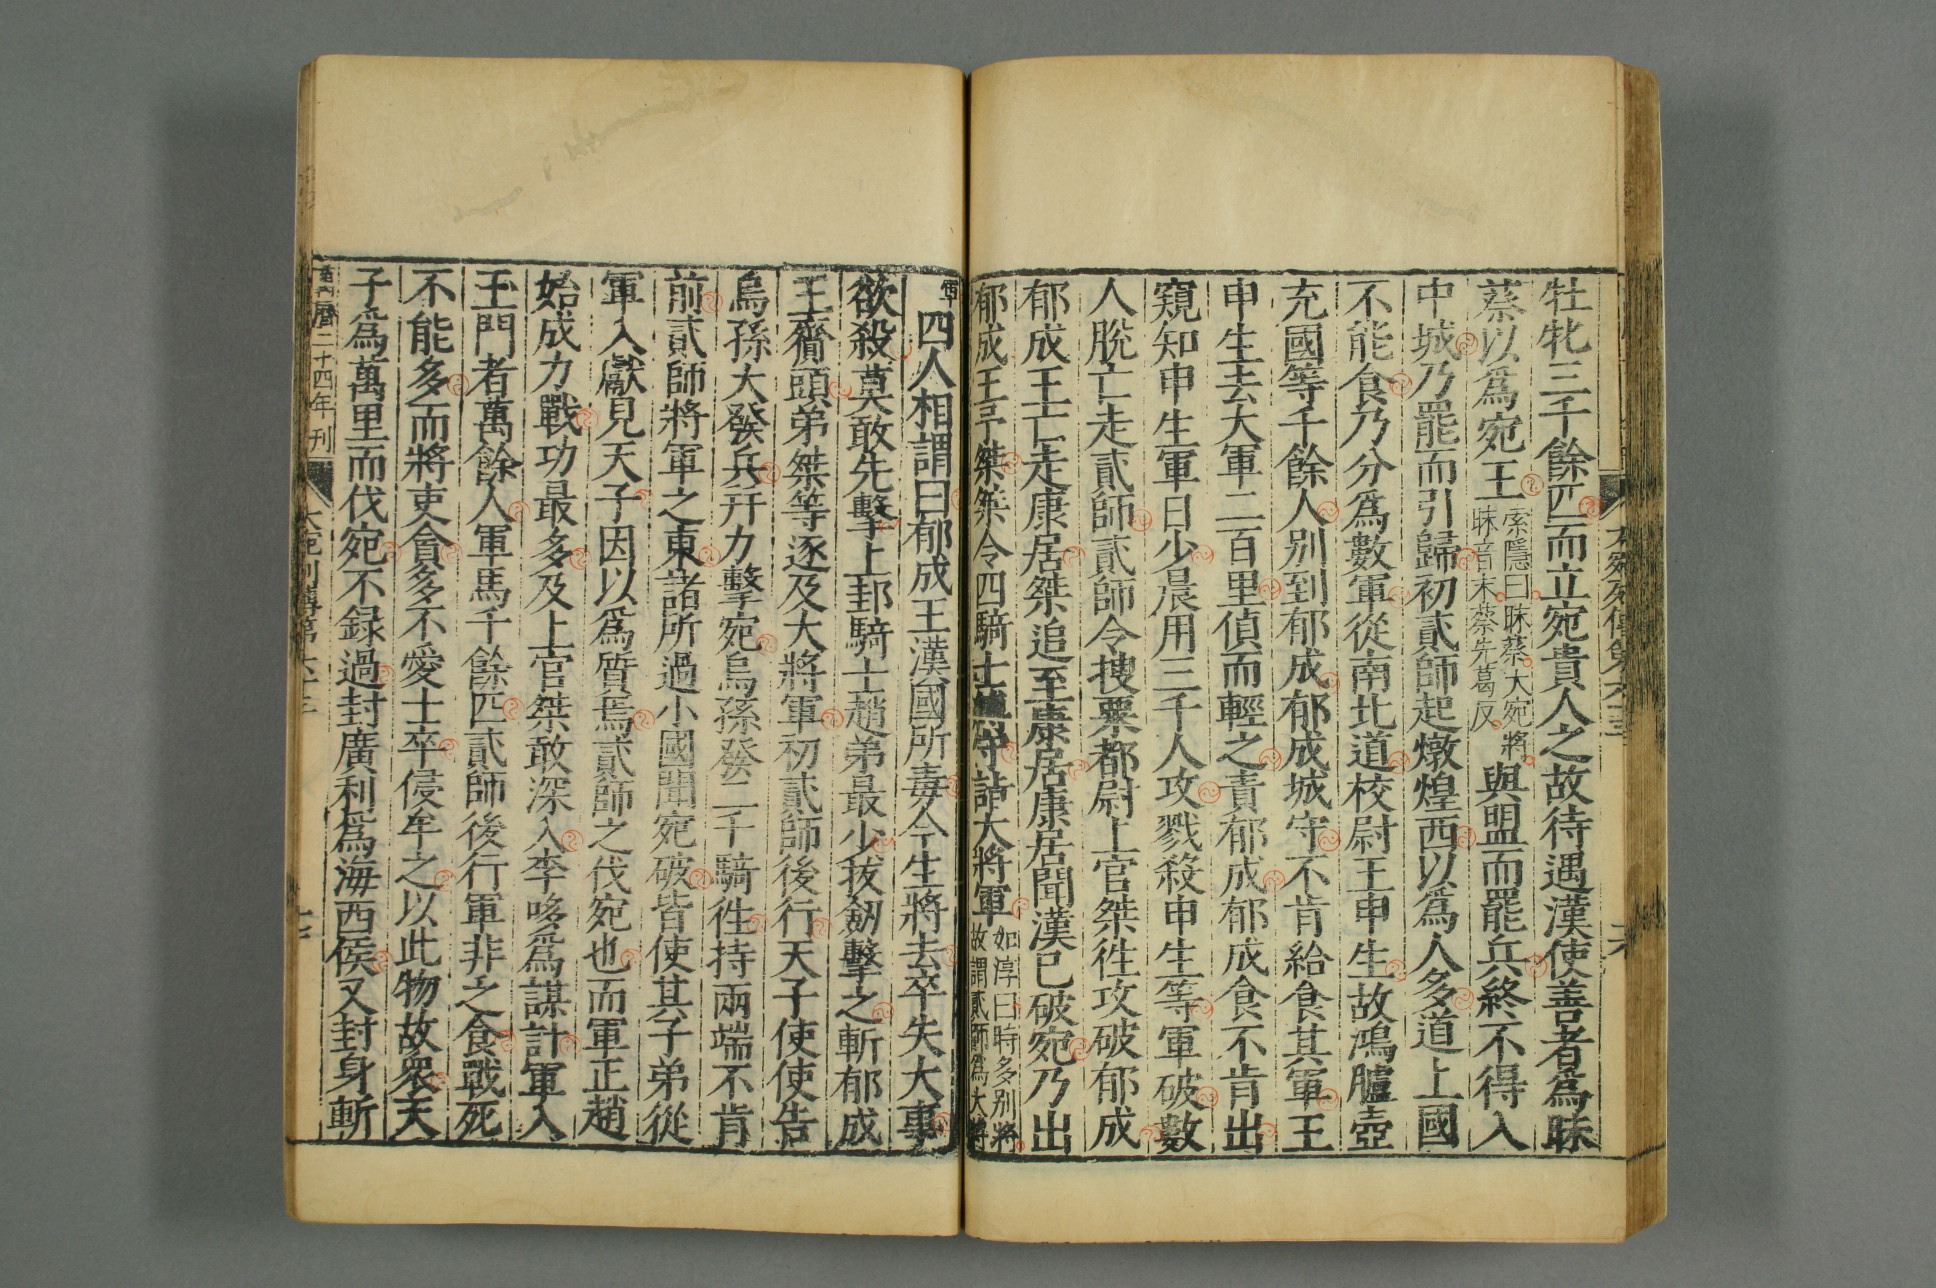 牡牝三千餘匹而立宛貴人之故待遇漢使善者爲昧
蔡以爲宛王索隱曰昧蔡大宛將昧音末蔡先葛反與盟而罷兵終不得入
中城乃罷而引歸初貳師起燉煌西以爲人多道上國
不能食乃分爲數軍從南北道校尉王申生故鴻臚壺
充國等千餘人别到郁成郁成城守不肯給食其軍王
申生去大軍二百里偵而輕之責郁成郁成食不肯出
窺知申生軍日少晨用三千人攻戮殺申生等軍破數
人脫亡走貳師貳師令搜粟都尉上官桀徃攻破郁成
郁成王亡走康居桀追至康居康居聞漢已破宛乃出
郁成王予桀桀令四騎士縛守詣大將軍如淳曰時多别將故謂貳師爲大將
軍四人相謂曰郁成王漢國所毒今生將去卒失大事
欲殺莫敢先擊上邽騎士趙弟最少拔劒擊之斬郁成
王齎頭弟桀等逐及大將軍初貳師後行天子使使告
烏孫大發兵幷力擊宛烏孫發二千騎徃持兩端不肯
前貳師將軍之東諸所過小國聞宛破皆使其子弟從
軍入獻見天子因以爲質焉貳師之伐宛也而軍正趙
始成力戰功最多及上官桀敢深入李哆爲謀計軍入
玉門者萬餘人軍馬千餘匹貳師後行軍非乏食戰死
不能多而將吏貪多不愛士卒侵牟之以此物故衆天
子爲萬里而伐宛不録過封廣利爲海西侯又封身斬
曆二十四年刊
大宛列傳第六十三
七